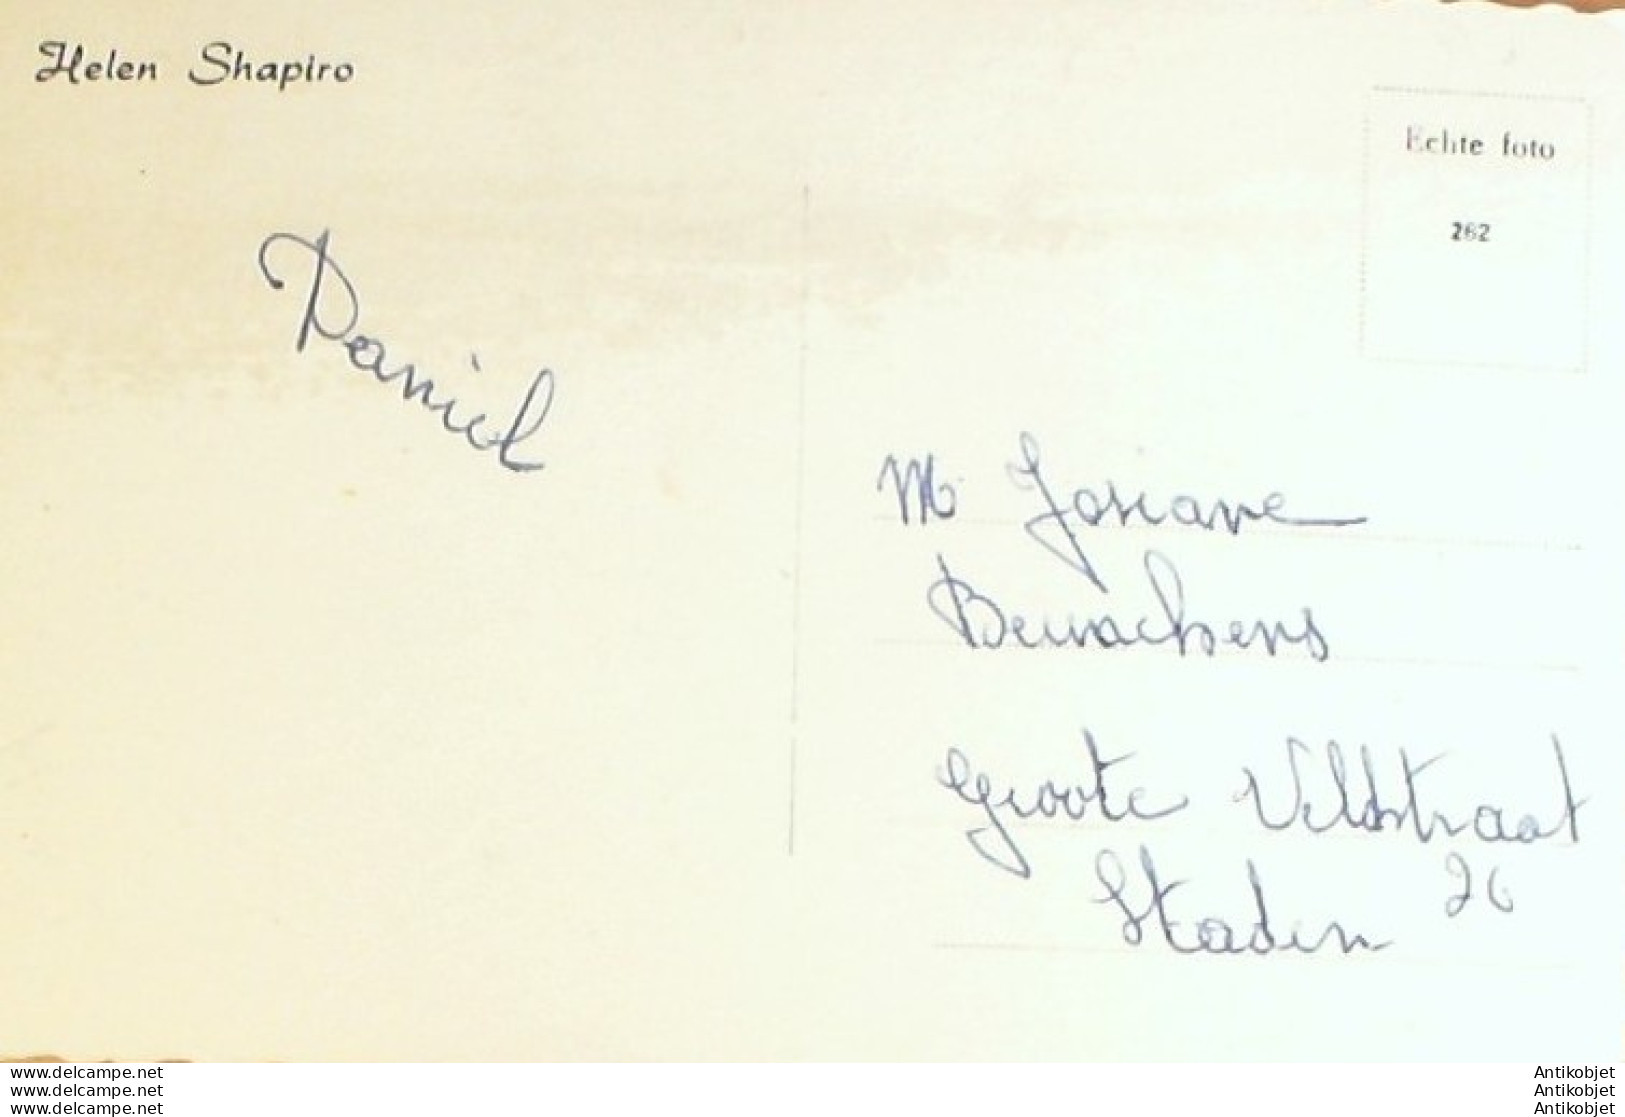 Helen Shapiro
Echte foto
262
Daniel
M Josiane
Groote Veldstraat
26
Staden
www.delcampe.net
www.delcampe.net
www.delcampe.net
Antikobjet
Antikobjet
Antikobjet